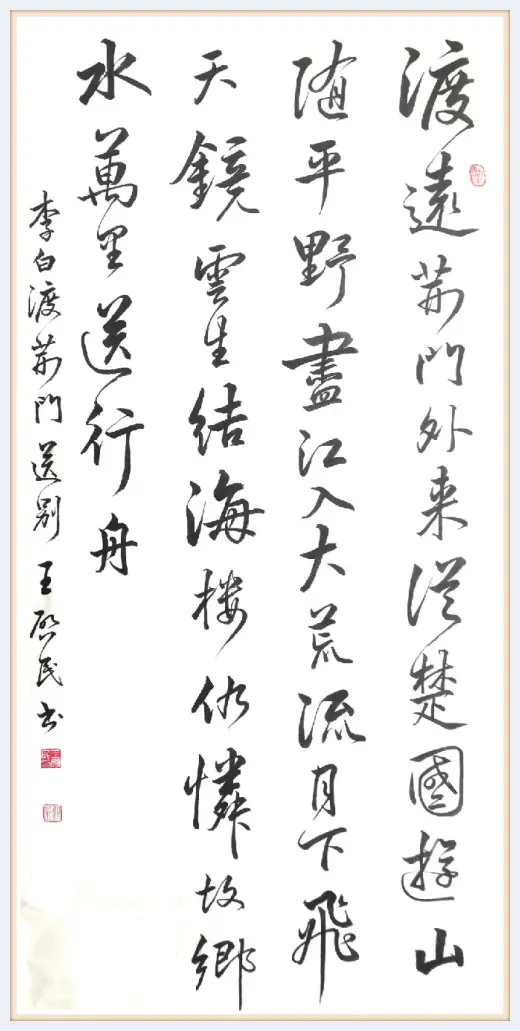 渡遠荊門外来從楚國遊山
随平野盡江入大荒流月下飛
天鏡雲生结海楼仍憐故鄉
水萬里送行舟
李白渡荊門送别王啟民书